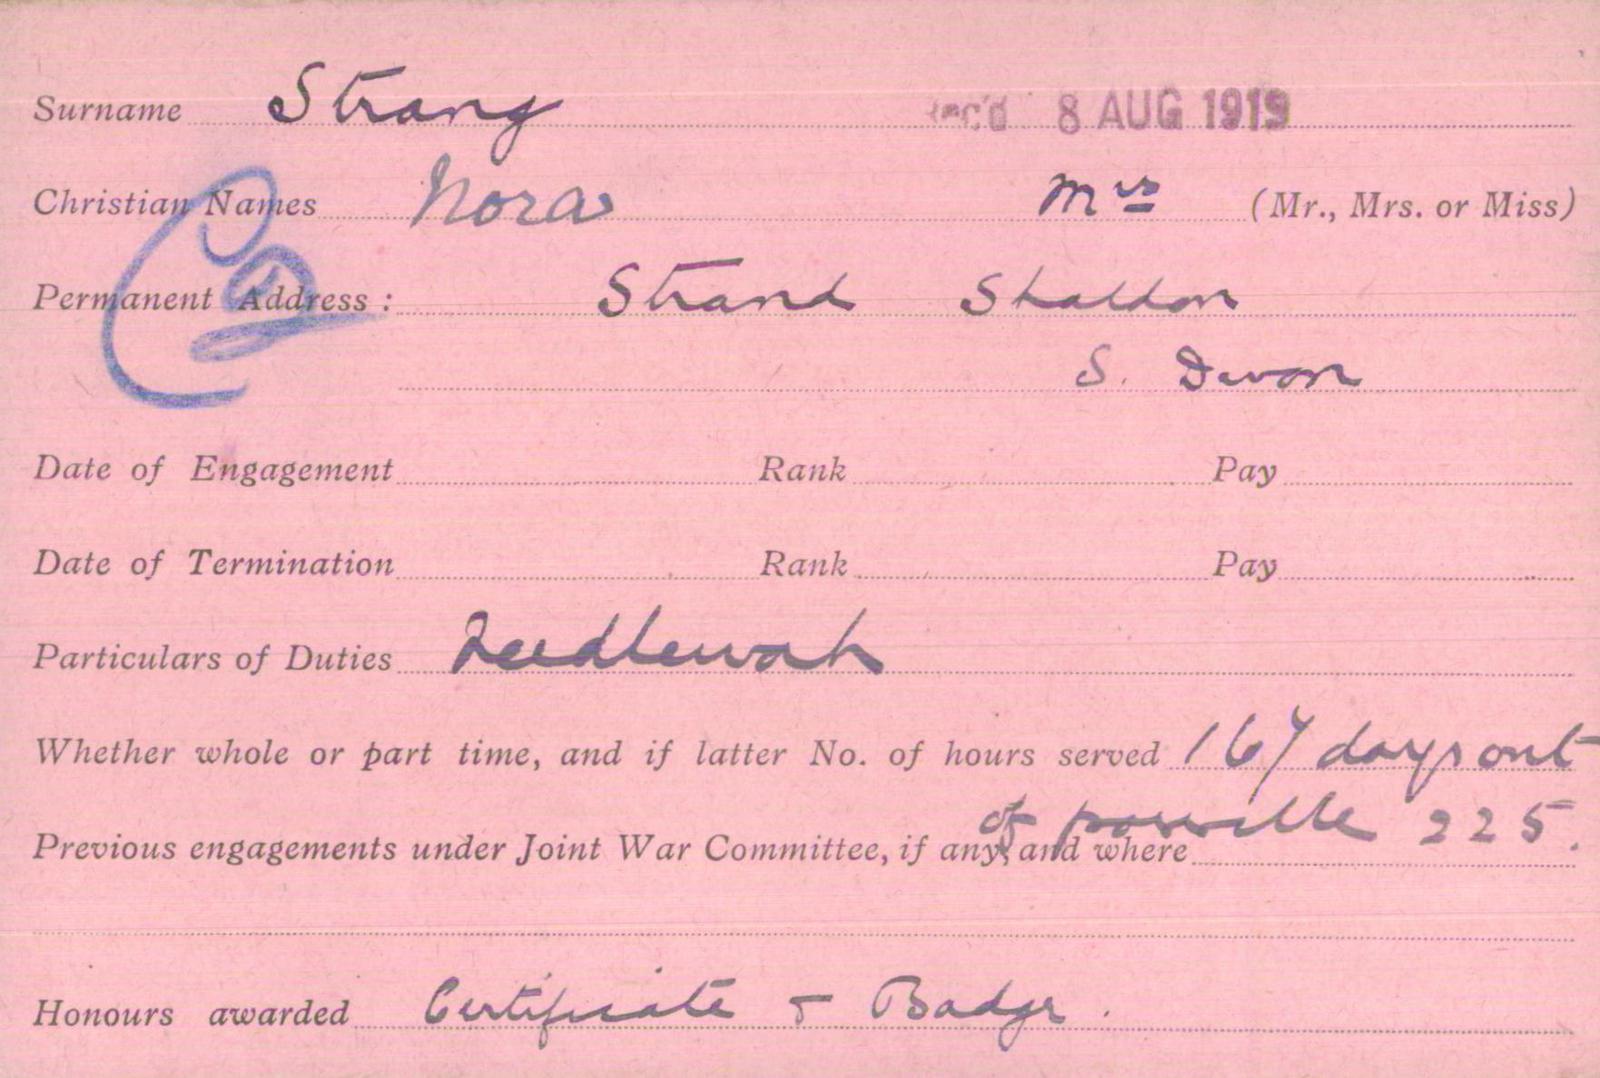 Surname Strang Rec'd 8 AUG 1919
Christian Names Nora Mrs (Mr., Mrs. or Miss)
Permanent Address: Strand Shaldon
S. Devon
Date of Engagement Rank Pay
Date of Termination Rank Pay
Particulars of Duties Needlework
Whether whole or part time, and if latter No. of hours served 167 days out
of possible 225.
Previous engagements under Joint War Committee, if any, and where
Honours awarded Certificate & Badge.